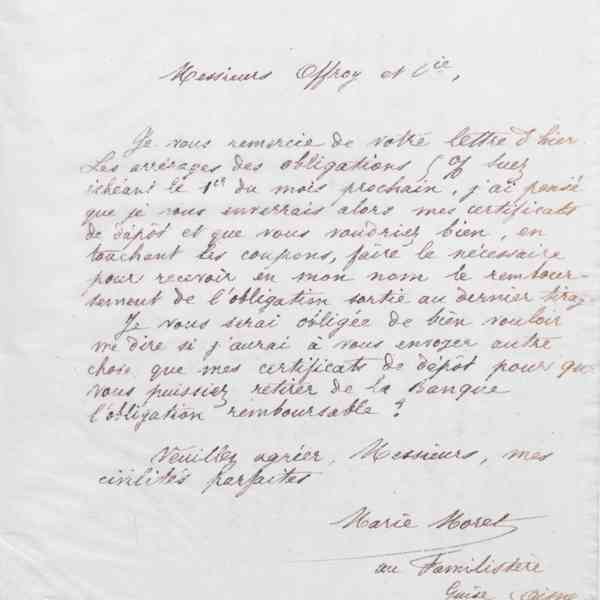 Messieurs Offroy et Cie,
Je vous remercie de votre lettre d'hier.
Les arrérages des obligations 5 % Suez
échéant le 1er du mois prochain, j'ai pensé
que je vous enverrais alors mes certificats
de dépôt et que vous voudriez bien, en
touchant les coupons, faire le nécessaire
pour recevoir en mon nom le rembour-
sement de l'obligation sortie au dernier tirag
Je vous serai obligée de bien vouloir
me dire si j'aurai à vous envoyer autre
chose que mes certificats de dépôt pour que
vous puissiez retirer de la Banque
l'obligation remboursable ?
Veuillez agréer, Messieurs, mes
civilités parfaites
Marie Moret
au Familistère
Guise Aisne